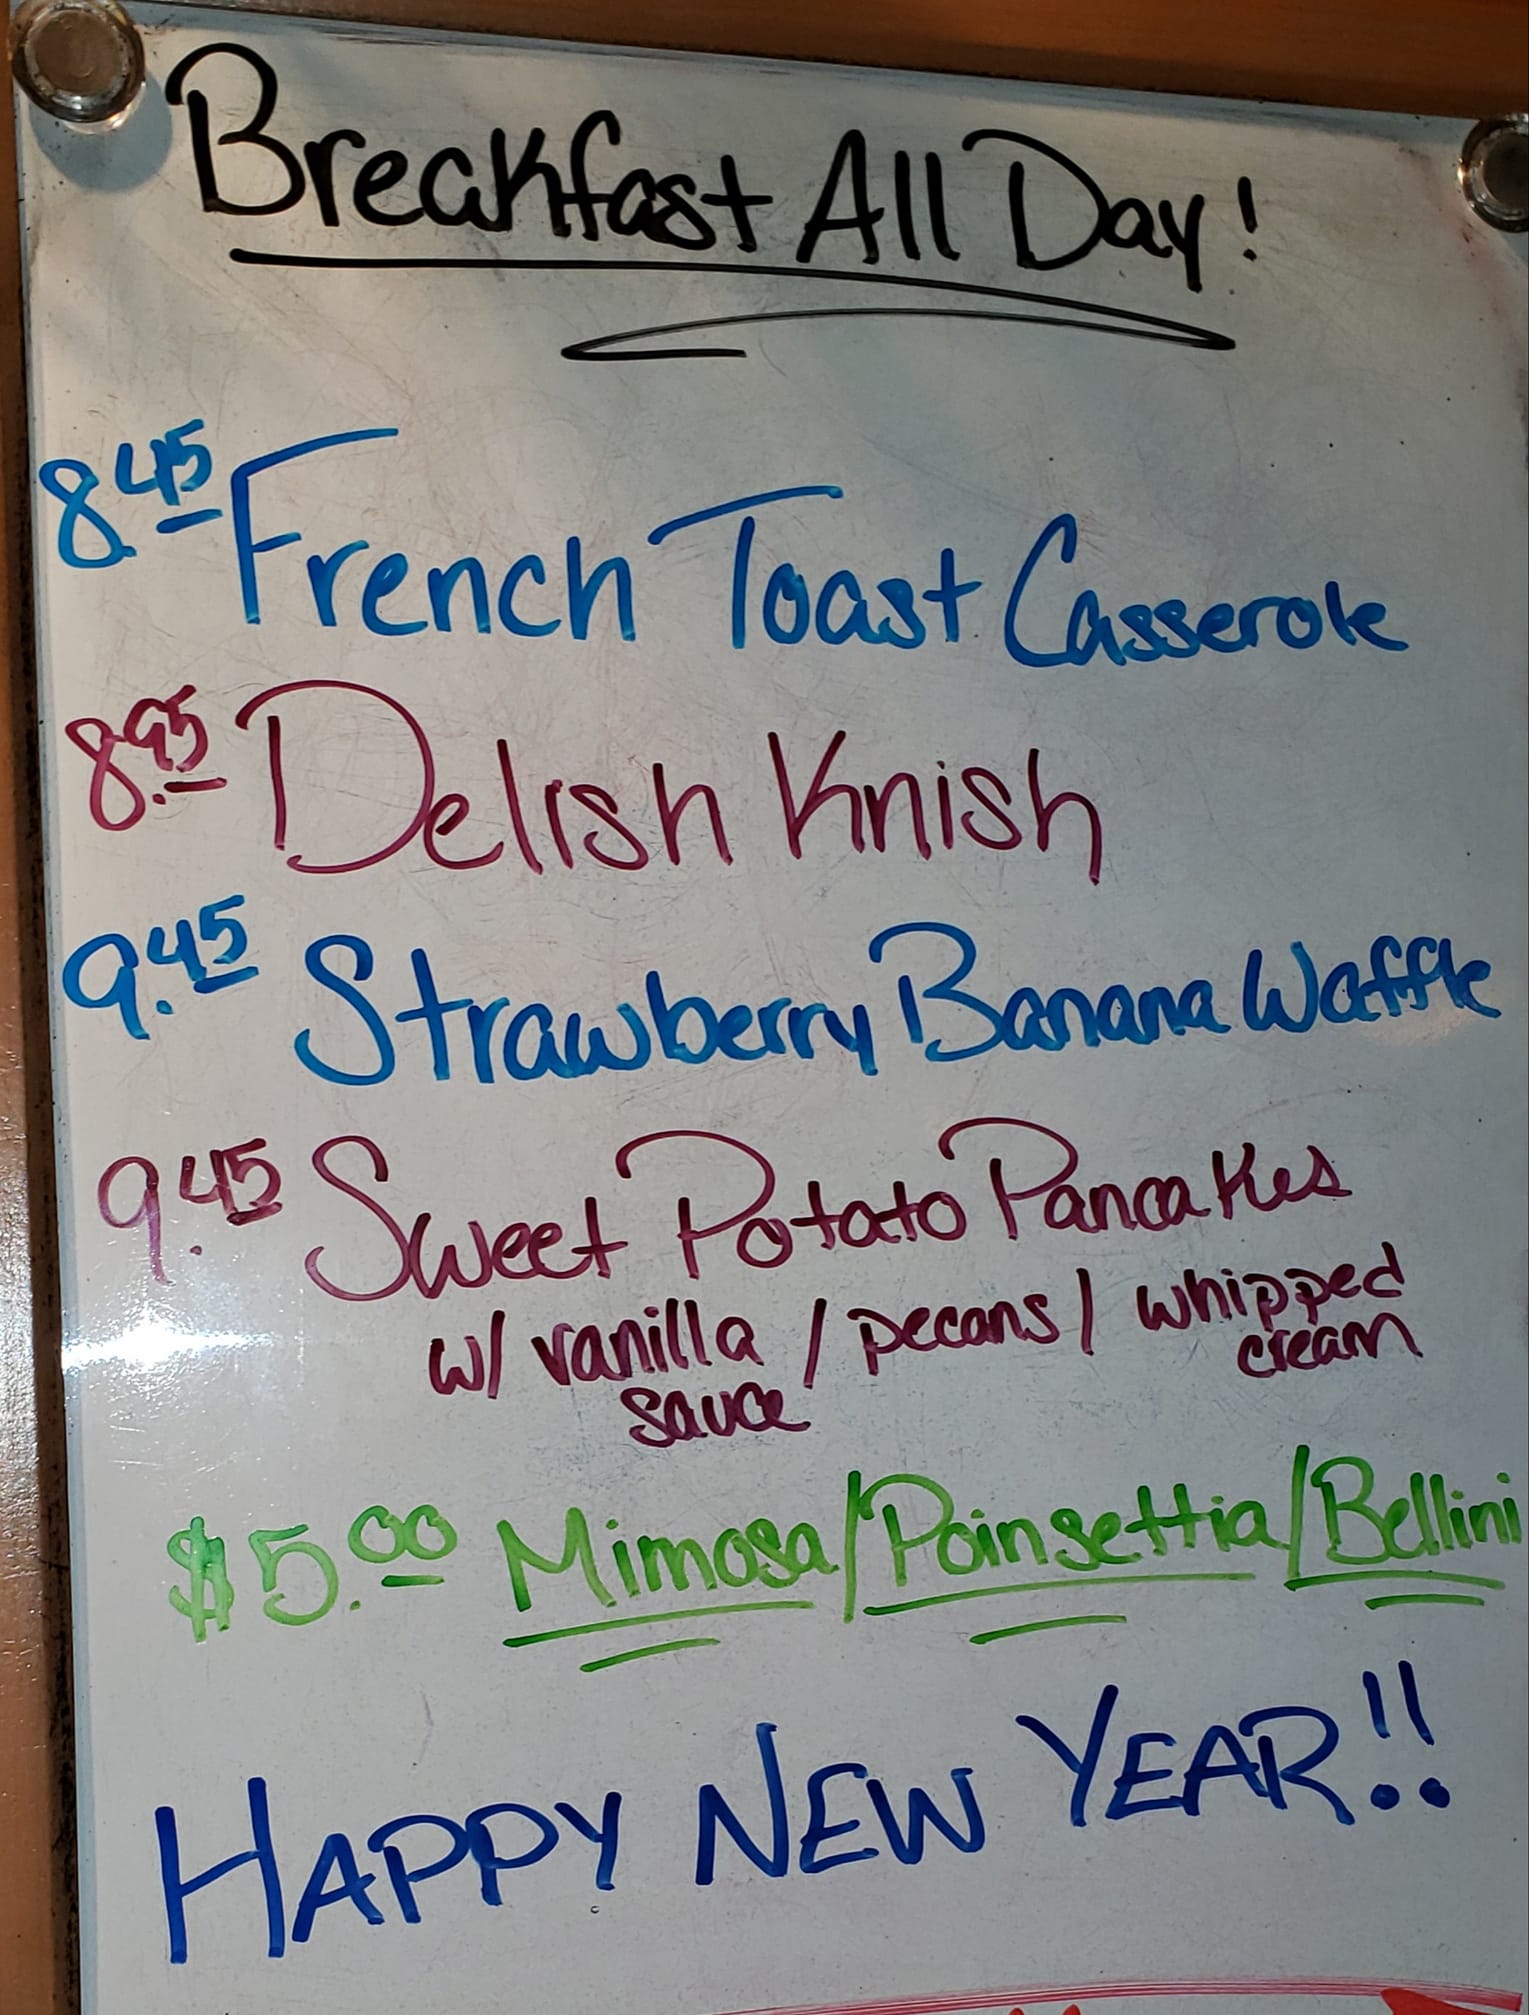 Breakfast All Day!
8.45 French Toast Casserole
8.95 Delish Knish
9.45 Strawberry Banana Waffle
9.45 Sweet Potato Pancakes
w/ vanilla / pecans / whipped
sauce cream
$5.00 Mimosa/Poinsettia/Bellini
HAPPY NEW YEAR!!